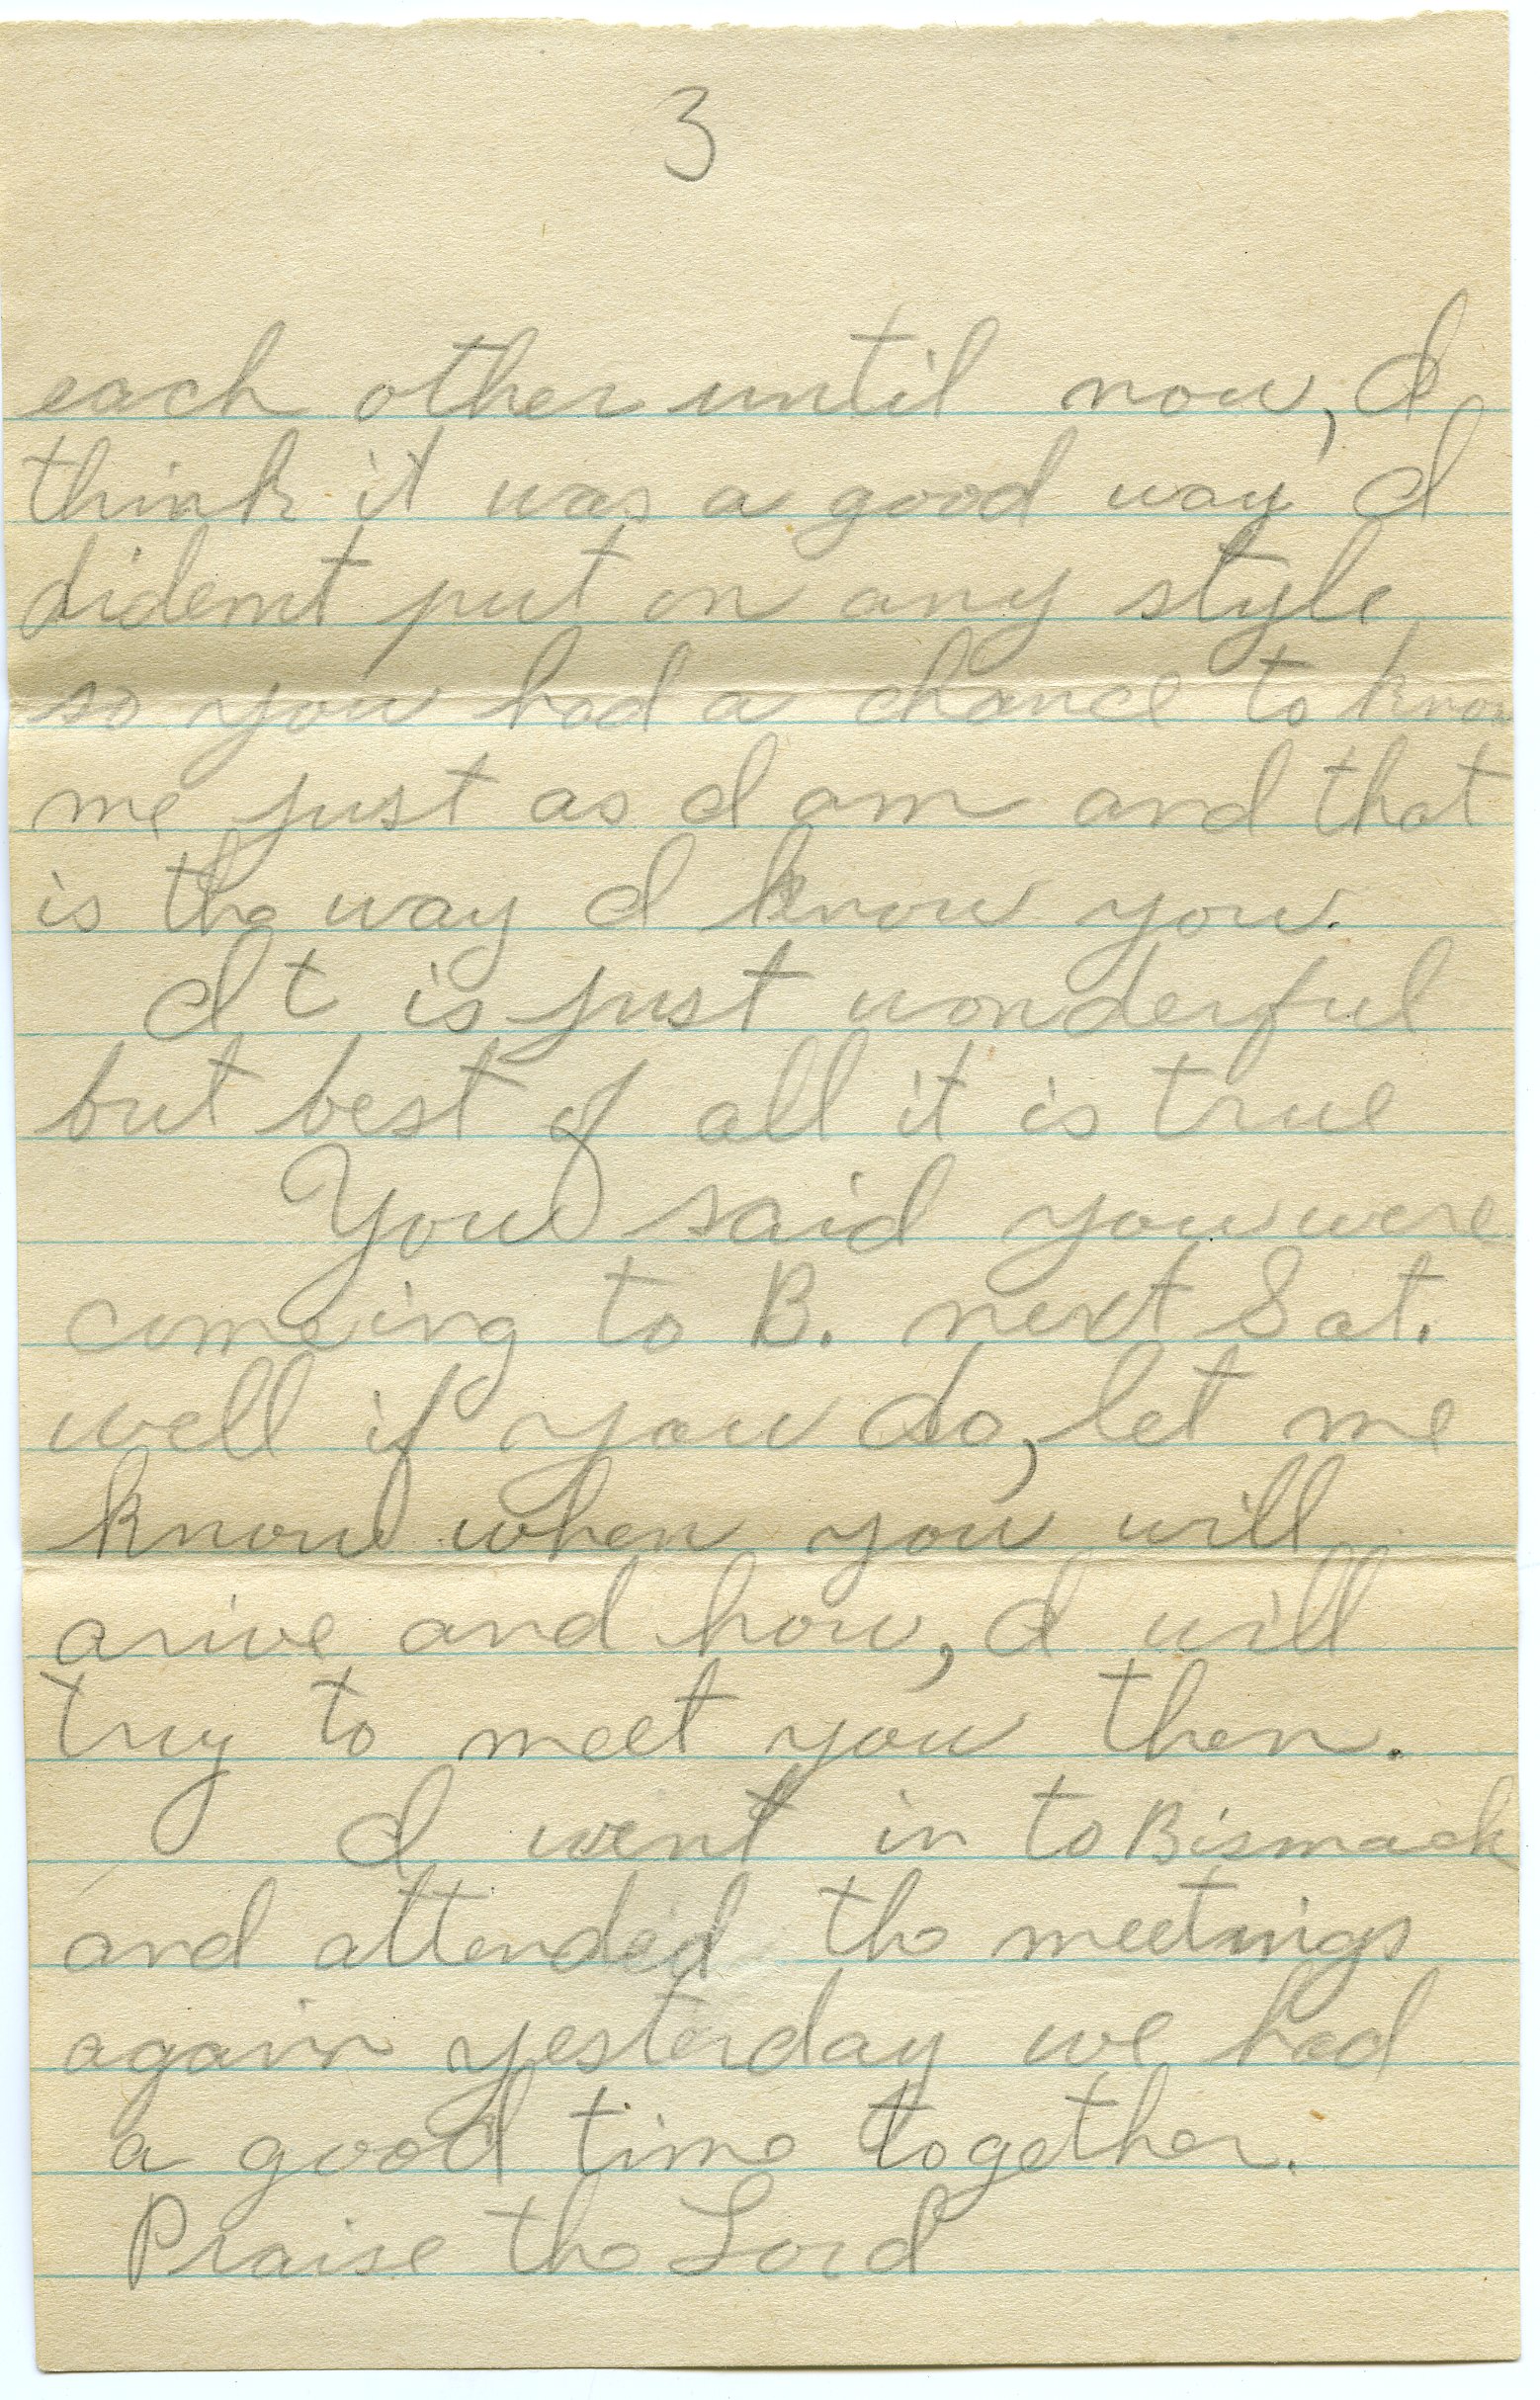 3
each other until now, I
think it was a good way I
didemt put on any style
so you had a chance to know
me just as I am and that
is the way I know you.
It is just wonderful
but best of all it is true
You said you were
comeing to B. next Sat.
well if you do, let me
know when you will
arive and how, I will
try to meet you then.
I went in to Bismack
and attended the meetings
again yesterday we had
a good time together.
Praise the Lord